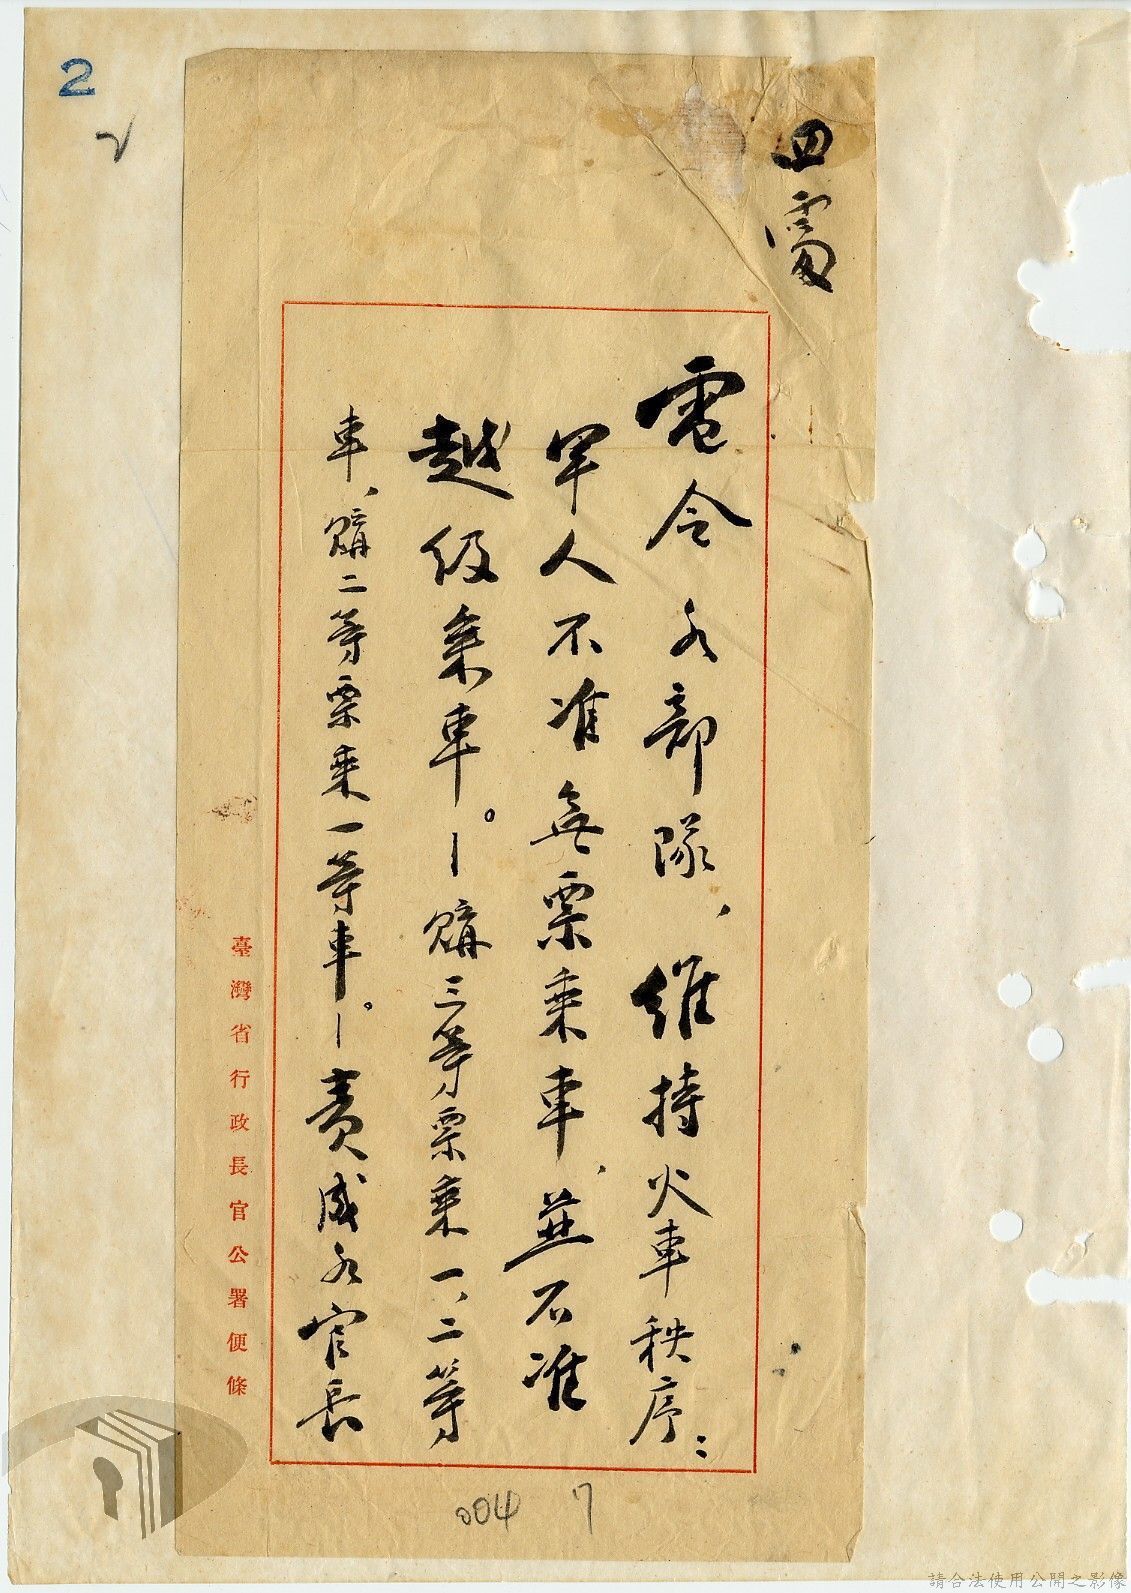 2
電令各部隊，維持火車秩序：
軍人不准無票乘車，並不准
越級乘車。－購三等票乘一、二等
車、購二等票乘一等車。－責成各官長
臺灣省行政長官公署便條
004
7
請合法使用公開之影像